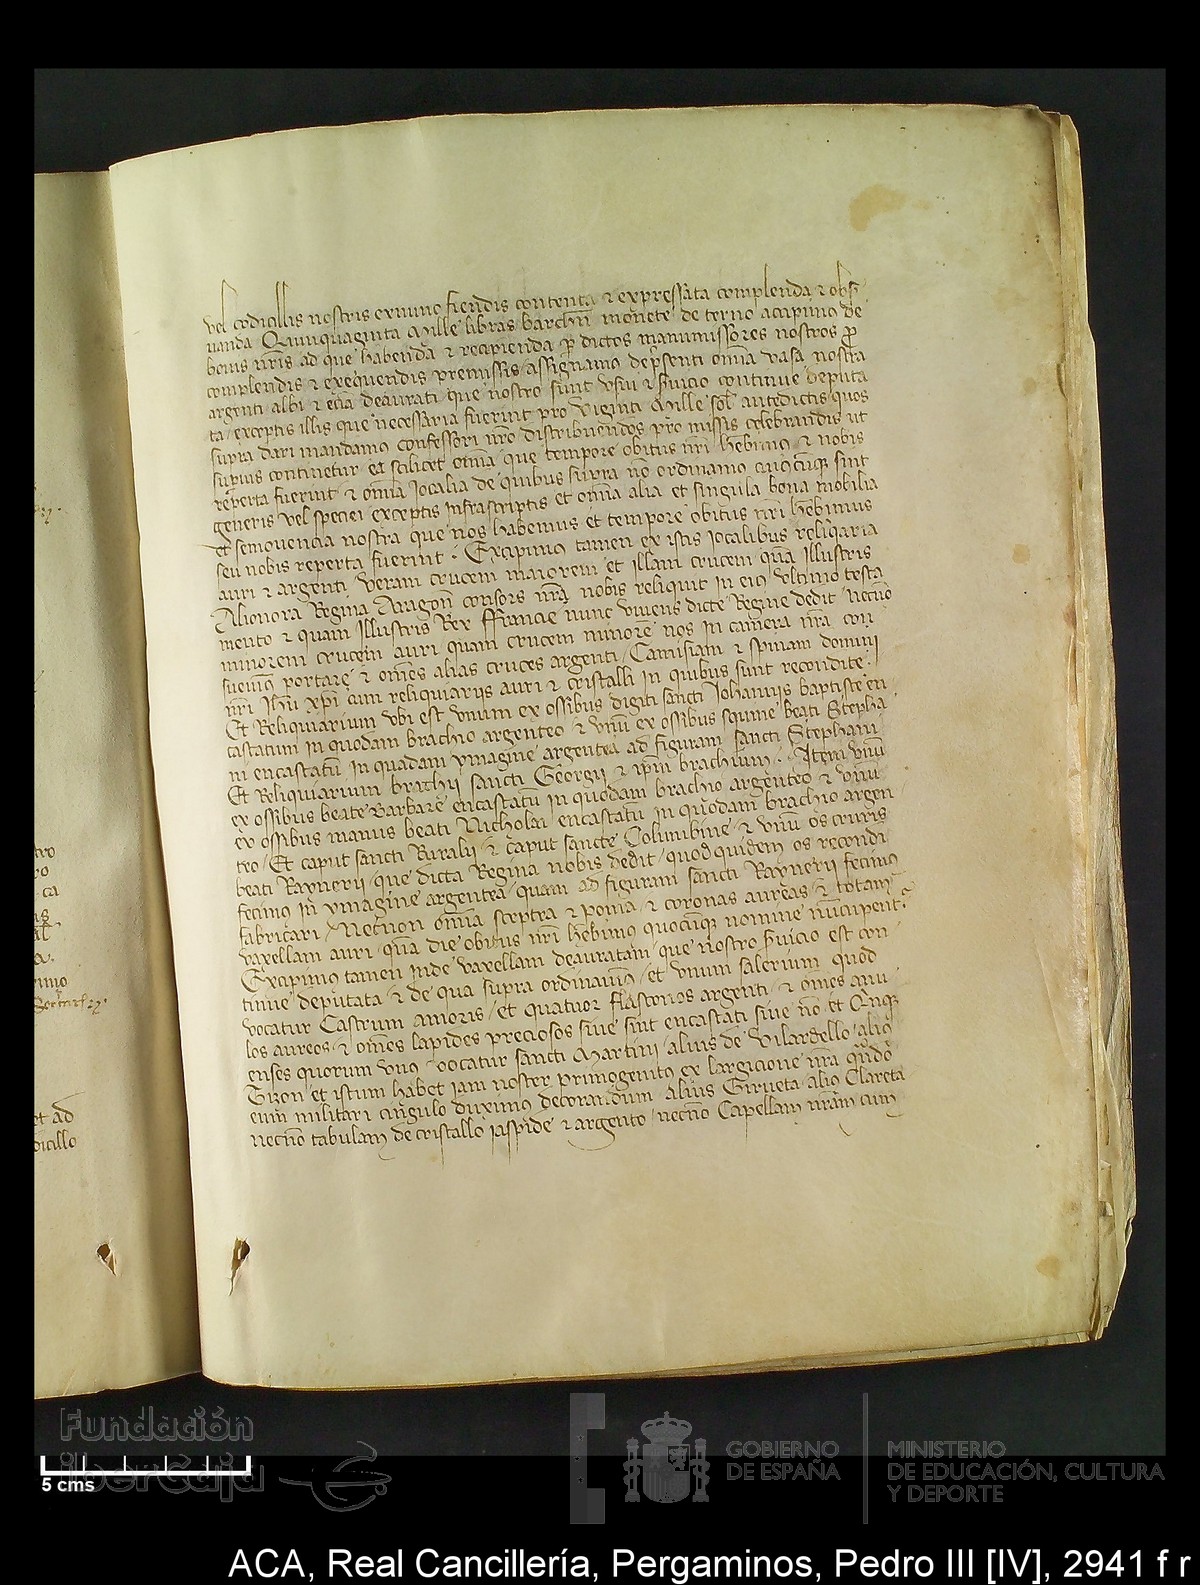 vel codicillis nostris exnunc fiendis contenta et expressata complenda et obser
uanda Quinquaginta Mille libras barchn̄ monete de terno accipimus de
bonis nr̄is ad que habenda et recipienda ꝑ dictos manumissores nostros pro
complendis et exequendis premissis assignamus depn̄senti om̄ia vasa nostra
argenti albi et ecia deaurati que nostro sunt vsui et s̄uicio continue deputa
ta exceptis illis que necessaria fuerint pro viginti Mille sol̄ antedictis quos
supra dari mandamus confessori nr̄o distribuendos pro missis celebrandis ut
supius continetur ea scilicet om̄ia que tempore obitus nr̄i hēbimus et nobis
reperta fuerint et om̄ia Jocalia de quibus supra nō ordinamus cuiuscūque sint
generis vel speciei exceptis infrascriptis et om̄ia alia et singula bona mobilia
et semouencia nostra que nos habemus et tempore obitus nr̄i hēbimus
seu nobis reperta fuerint Excipimus tamen ex istis Jocalibus reliq̄aria
auri et argenti veram crucem maiorem et illam crucem quā Illustris
Alionora Regina Aragon̄ consors nr̄a nobis reliquit in eius vltimo testa
mento et quam Illustris Rex ffrancie nunc viuens dicte Regine dedit necnō
minorem crucem auri quam crucem minorē nos in cam̄era nr̄a con
sueuim̄ portare et om̄es alias cruces argenti Camisiam et spinam domini
nr̄i Ihū xp̄i cum reliquiarijs auri et cristalli in quibus sunt recondite
Et Reliquiarium vbi est vnum ex ossibus digiti sancti Johannis baptiste en
castatum in quodam brachio argenteo et vnū ex ossibus squine beati Stepha
ni encastatū in quadam ymagine argentea ad figuram sancti Stephani
Et Reliquiarium brachij sancti Georgij et ip̄m brachium Item vnū
ex ossibus beate Barbare encastatū in quodam brachio argenteo et vnū
ex ossibus manus beati Nicholai encastatū in quodam brachio argen
teo Et caput sancti et caput sancte Columbine et vnū os cruris
beati Raynerij que dicta Regina nobis dedit quod quidem os recondi
fecim̄ in ymagine argentea quam ad figuram sancti Raynerij fecim̄
fabricari Necnon om̄ia sceptra et poma et coronas aureas et totam
vaxellam auri quā die obitus nr̄i hēbim̄ quocūque nomine nūcupent̄
Excipim̄ tamen inde vaxellam deauratam que nostro s̄uicio est con
tinue deputata et de qua supra ordinauim̄ et vnum salerium quod
vocatur Castrum amoris et quatuor flascones argenti et om̄es anu
los aureos et om̄es lapides preciosos siue sint encastati siue nō et Quīque
enses quorum vnus vocatur sancti Martini alius de Vilardello alius
Tizon et istum habet iam noster primogenitus ex largicione nr̄a quādo
eum militari cingulo duximus decorandum alius Girueta alius Clareta
necnō tabulam de cristallo iaspide et argento necnō Capellam nr̄am cum
Fundación
iberCaja
5 cms
GOBIERNO
DE ESPAÑA
MINISTERIO
DE EDUCACIÓN, CULTURA
Y DEPORTE
ACA, Real Cancillería, Pergaminos, Pedro III [IV], 2941 f r